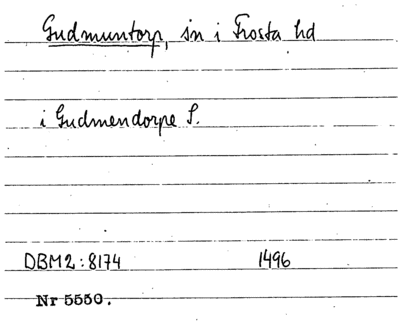 Gudmuntorp, sn i Frosta hd
i Gudmendorpe S.
DBM2:8174 1496
Nr 5550.